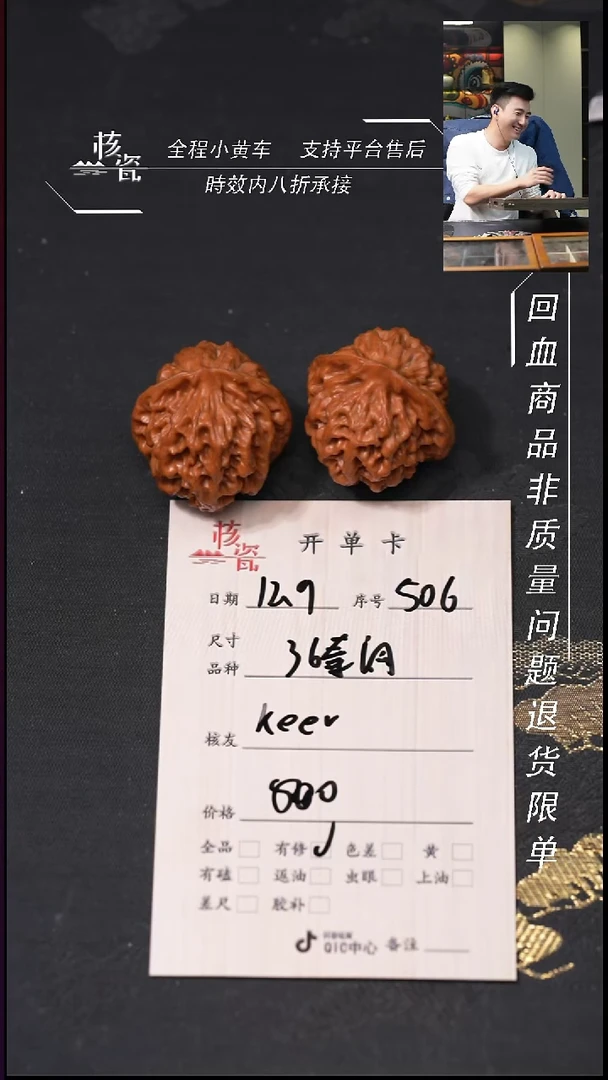 核瓷
全程小黄车 支持平台售后
時效内八折承接
回血商品非质量问题退货限单
核瓷 开单卡
日期 12.9 序号 506
尺寸
品种 36
核友 keer
价格 800
全品 有修 色差 黄
有磕 返油 虫眼 上油
差尺 胶补
QIC中心 备注